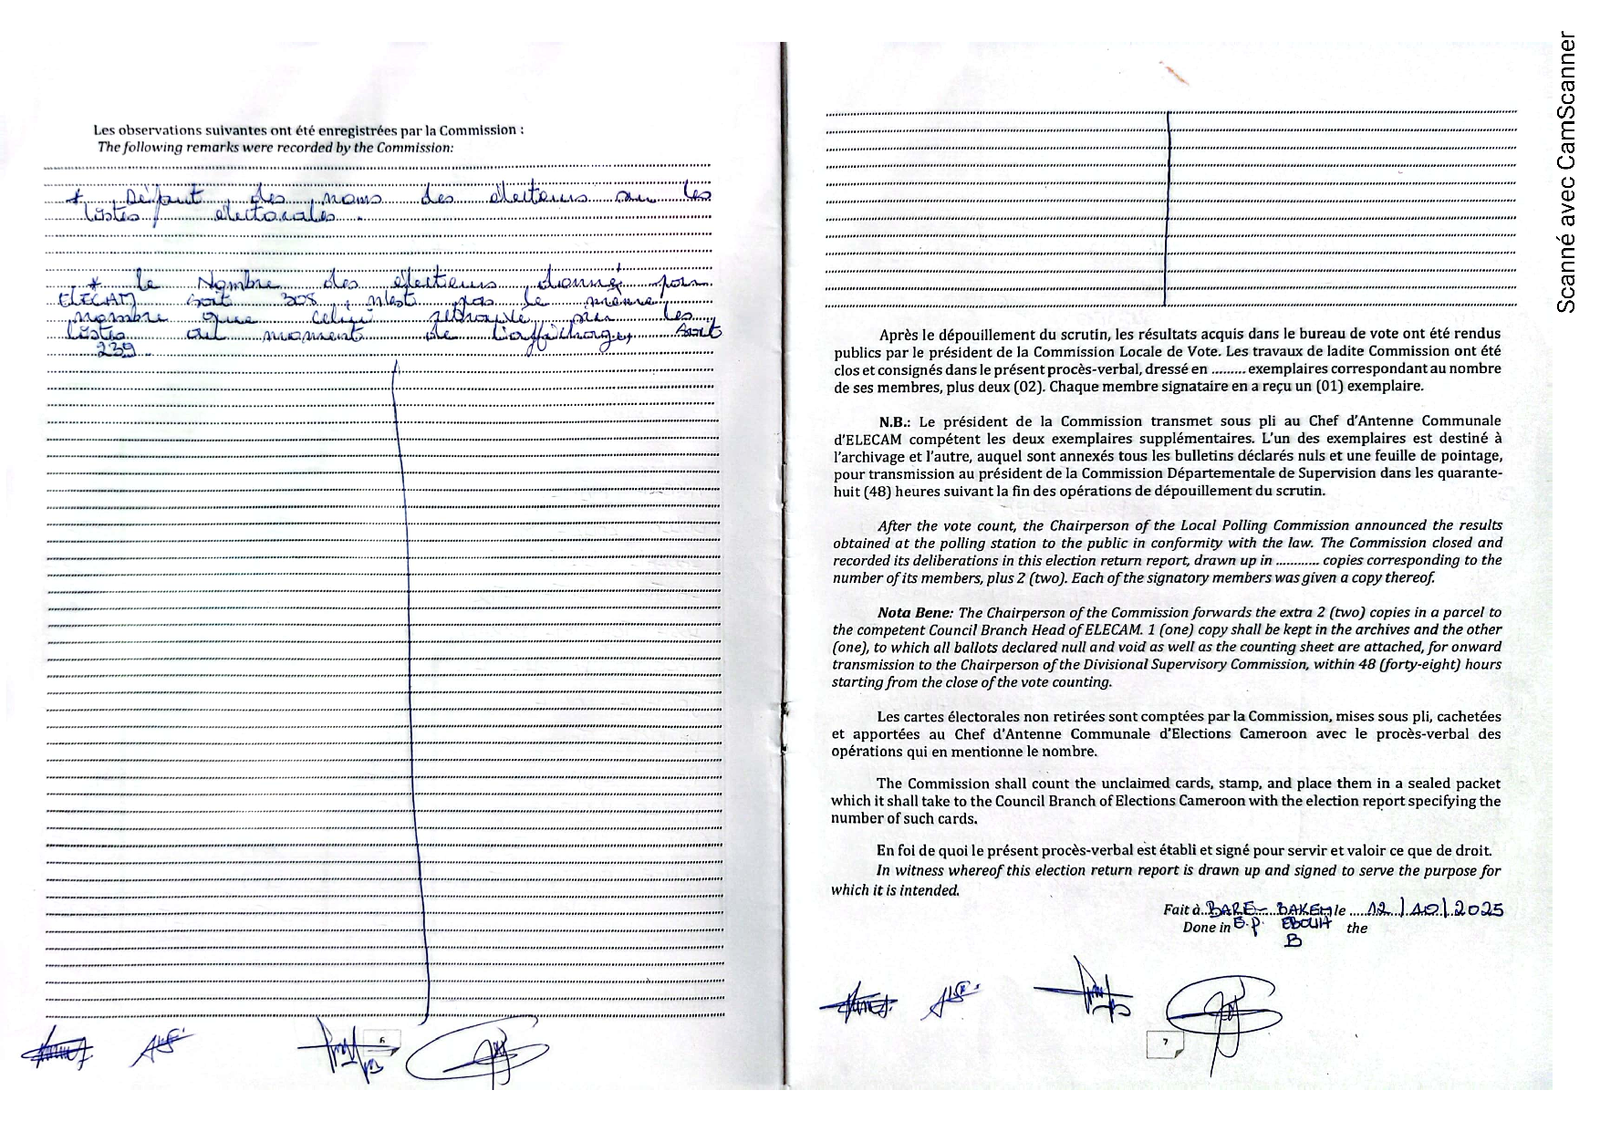 Les observations suivantes ont été enregistrées par la Commission :
The following remarks were recorded by the Commission:
* Défaut des noms des électeurs sur les
listes électorales.
* le Nombre des électeurs donné par
ELECAM soit 308, n'est pas le même
nombre que celui retrouvé sur les
listes au moment de l'affichage, soit
239.
6
Après le dépouillement du scrutin, les résultats acquis dans le bureau de vote ont été rendus
publics par le président de la Commission Locale de Vote. Les travaux de ladite Commission ont été
clos et consignés dans le présent procès-verbal, dressé en ......... exemplaires correspondant au nombre
de ses membres, plus deux (02). Chaque membre signataire en a reçu un (01) exemplaire.
N.B.: Le président de la Commission transmet sous pli au Chef d'Antenne Communale
d'ELECAM compétent les deux exemplaires supplémentaires. L'un des exemplaires est destiné à
l'archivage et l'autre, auquel sont annexés tous les bulletins déclarés nuls et une feuille de pointage,
pour transmission au président de la Commission Départementale de Supervision dans les quarante-
huit (48) heures suivant la fin des opérations de dépouillement du scrutin.
After the vote count, the Chairperson of the Local Polling Commission announced the results
obtained at the polling station to the public in conformity with the law. The Commission closed and
recorded its deliberations in this election return report, drawn up in ............ copies corresponding to the
number of its members, plus 2 (two). Each of the signatory members was given a copy thereof.
Nota Bene: The Chairperson of the Commission forwards the extra 2 (two) copies in a parcel to
the competent Council Branch Head of ELECAM. 1 (one) copy shall be kept in the archives and the other
(one), to which all ballots declared null and void as well as the counting sheet are attached, for onward
transmission to the Chairperson of the Divisional Supervisory Commission, within 48 (forty-eight) hours
starting from the close of the vote counting.
Les cartes électorales non retirées sont comptées par la Commission, mises sous pli, cachetées
et apportées au Chef d'Antenne Communale d'Elections Cameroon avec le procès-verbal des
opérations qui en mentionne le nombre.
The Commission shall count the unclaimed cards, stamp, and place them in a sealed packet
which it shall take to the Council Branch of Elections Cameroon with the election report specifying the
number of such cards.
En foi de quoi le présent procès-verbal est établi et signé pour servir et valoir ce que de droit.
In witness whereof this election return report is drawn up and signed to serve the purpose for
which it is intended.
Fait à BARE-BAKEM le 12/10/2025
Done in E.P. EBOUH the
B
7
Scanné avec CamScanner